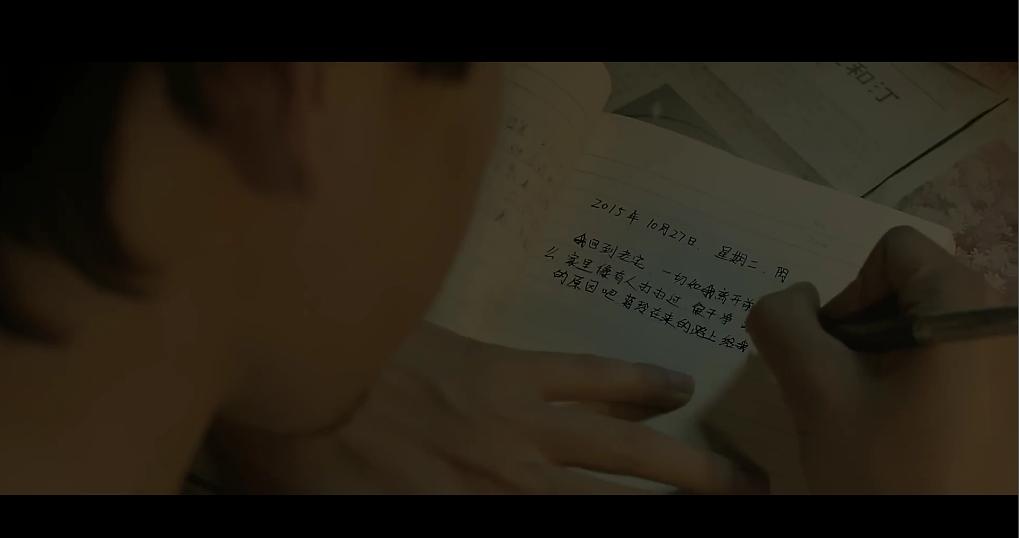 和汀
2015年10月27日. 星期二. 阴
我回到老宅. 一切如我离开前
么 家里像有人打扫过 很干净
的原因吧 蔷玲在来的路上给我